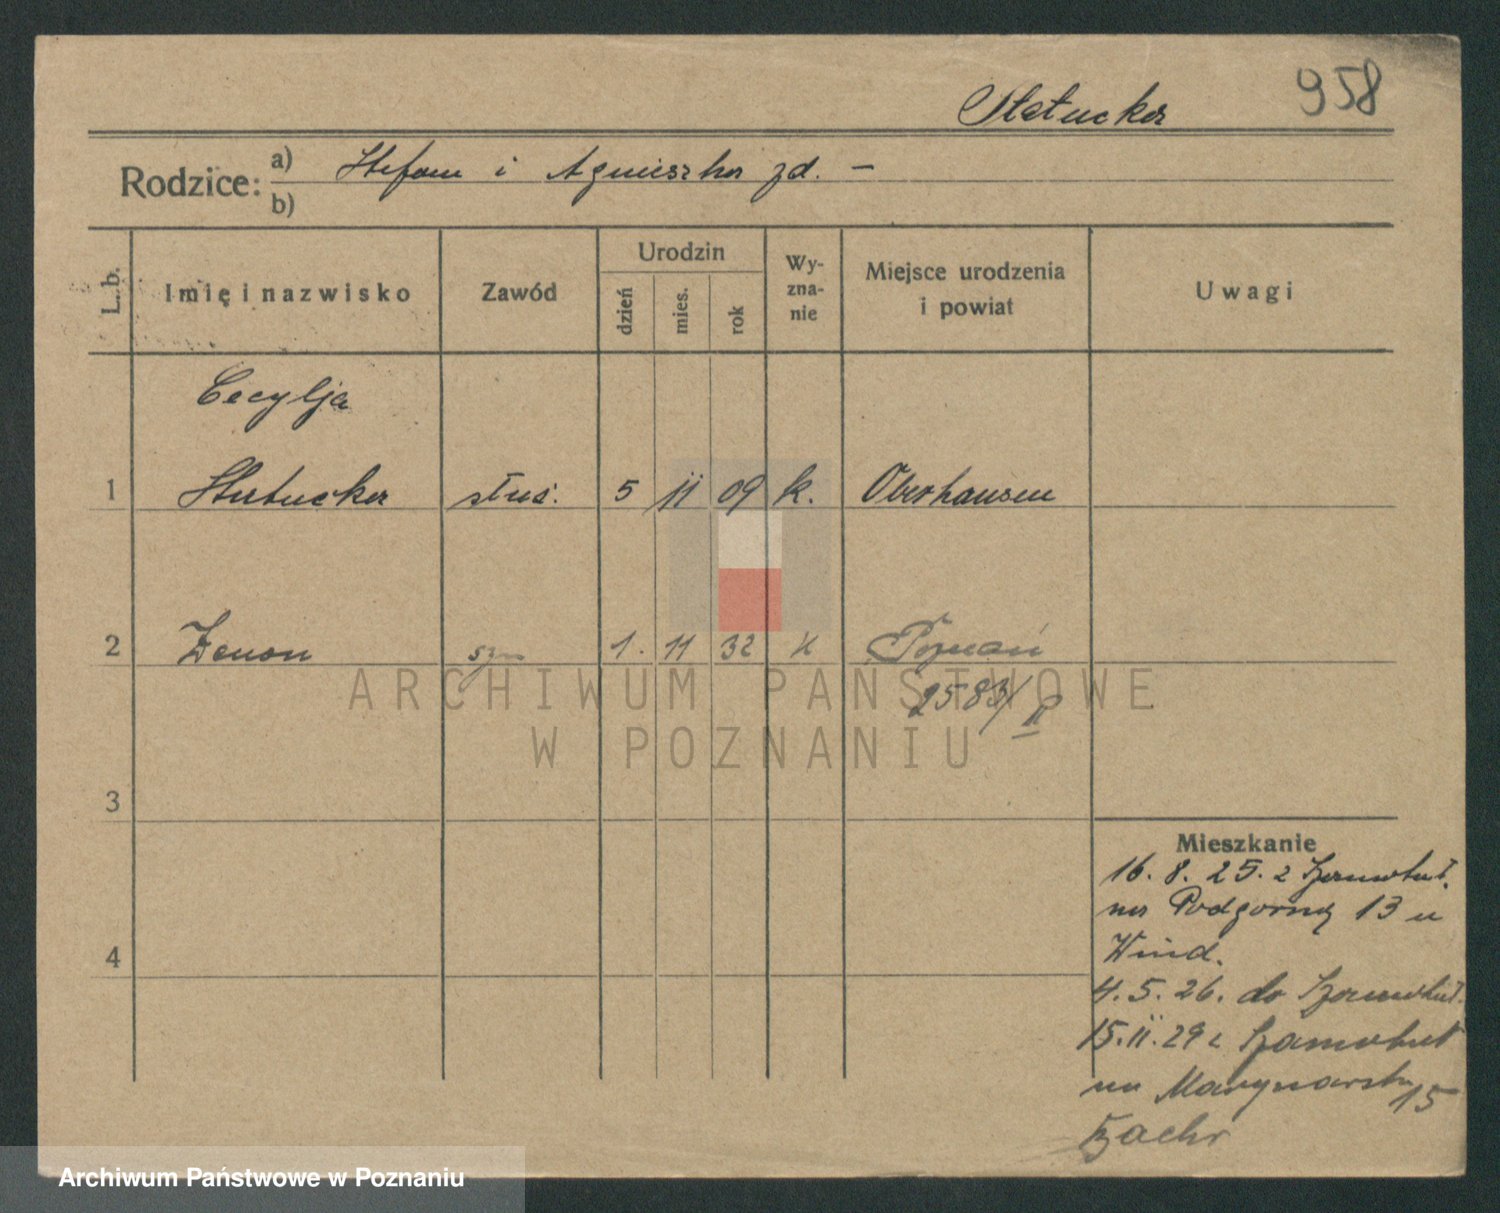 958
Rodzice: a) Stefan i Agnieszka zd. –
b)
L. b.
Imię i nazwisko
Zawód
Urodzin
dzień
mies.
rok
Wy-
zna-
nie
Miejsce urodzenia
i powiat
Uwagi
Cecylja
1 służ. 5 II 09 k. Oberhausen
2 Zenon syn 1. 11 32 k Poznań
2583/II
3
4
Mieszkanie
16. 8. 25. z
na Podgórną 13 u
Wind.
4. 5. 26. do
15. II. 29 z Szamotuł
na 15
ARCHIWUM PAŃSTWOWE
W POZNANIU
Archiwum Państwowe w Poznaniu